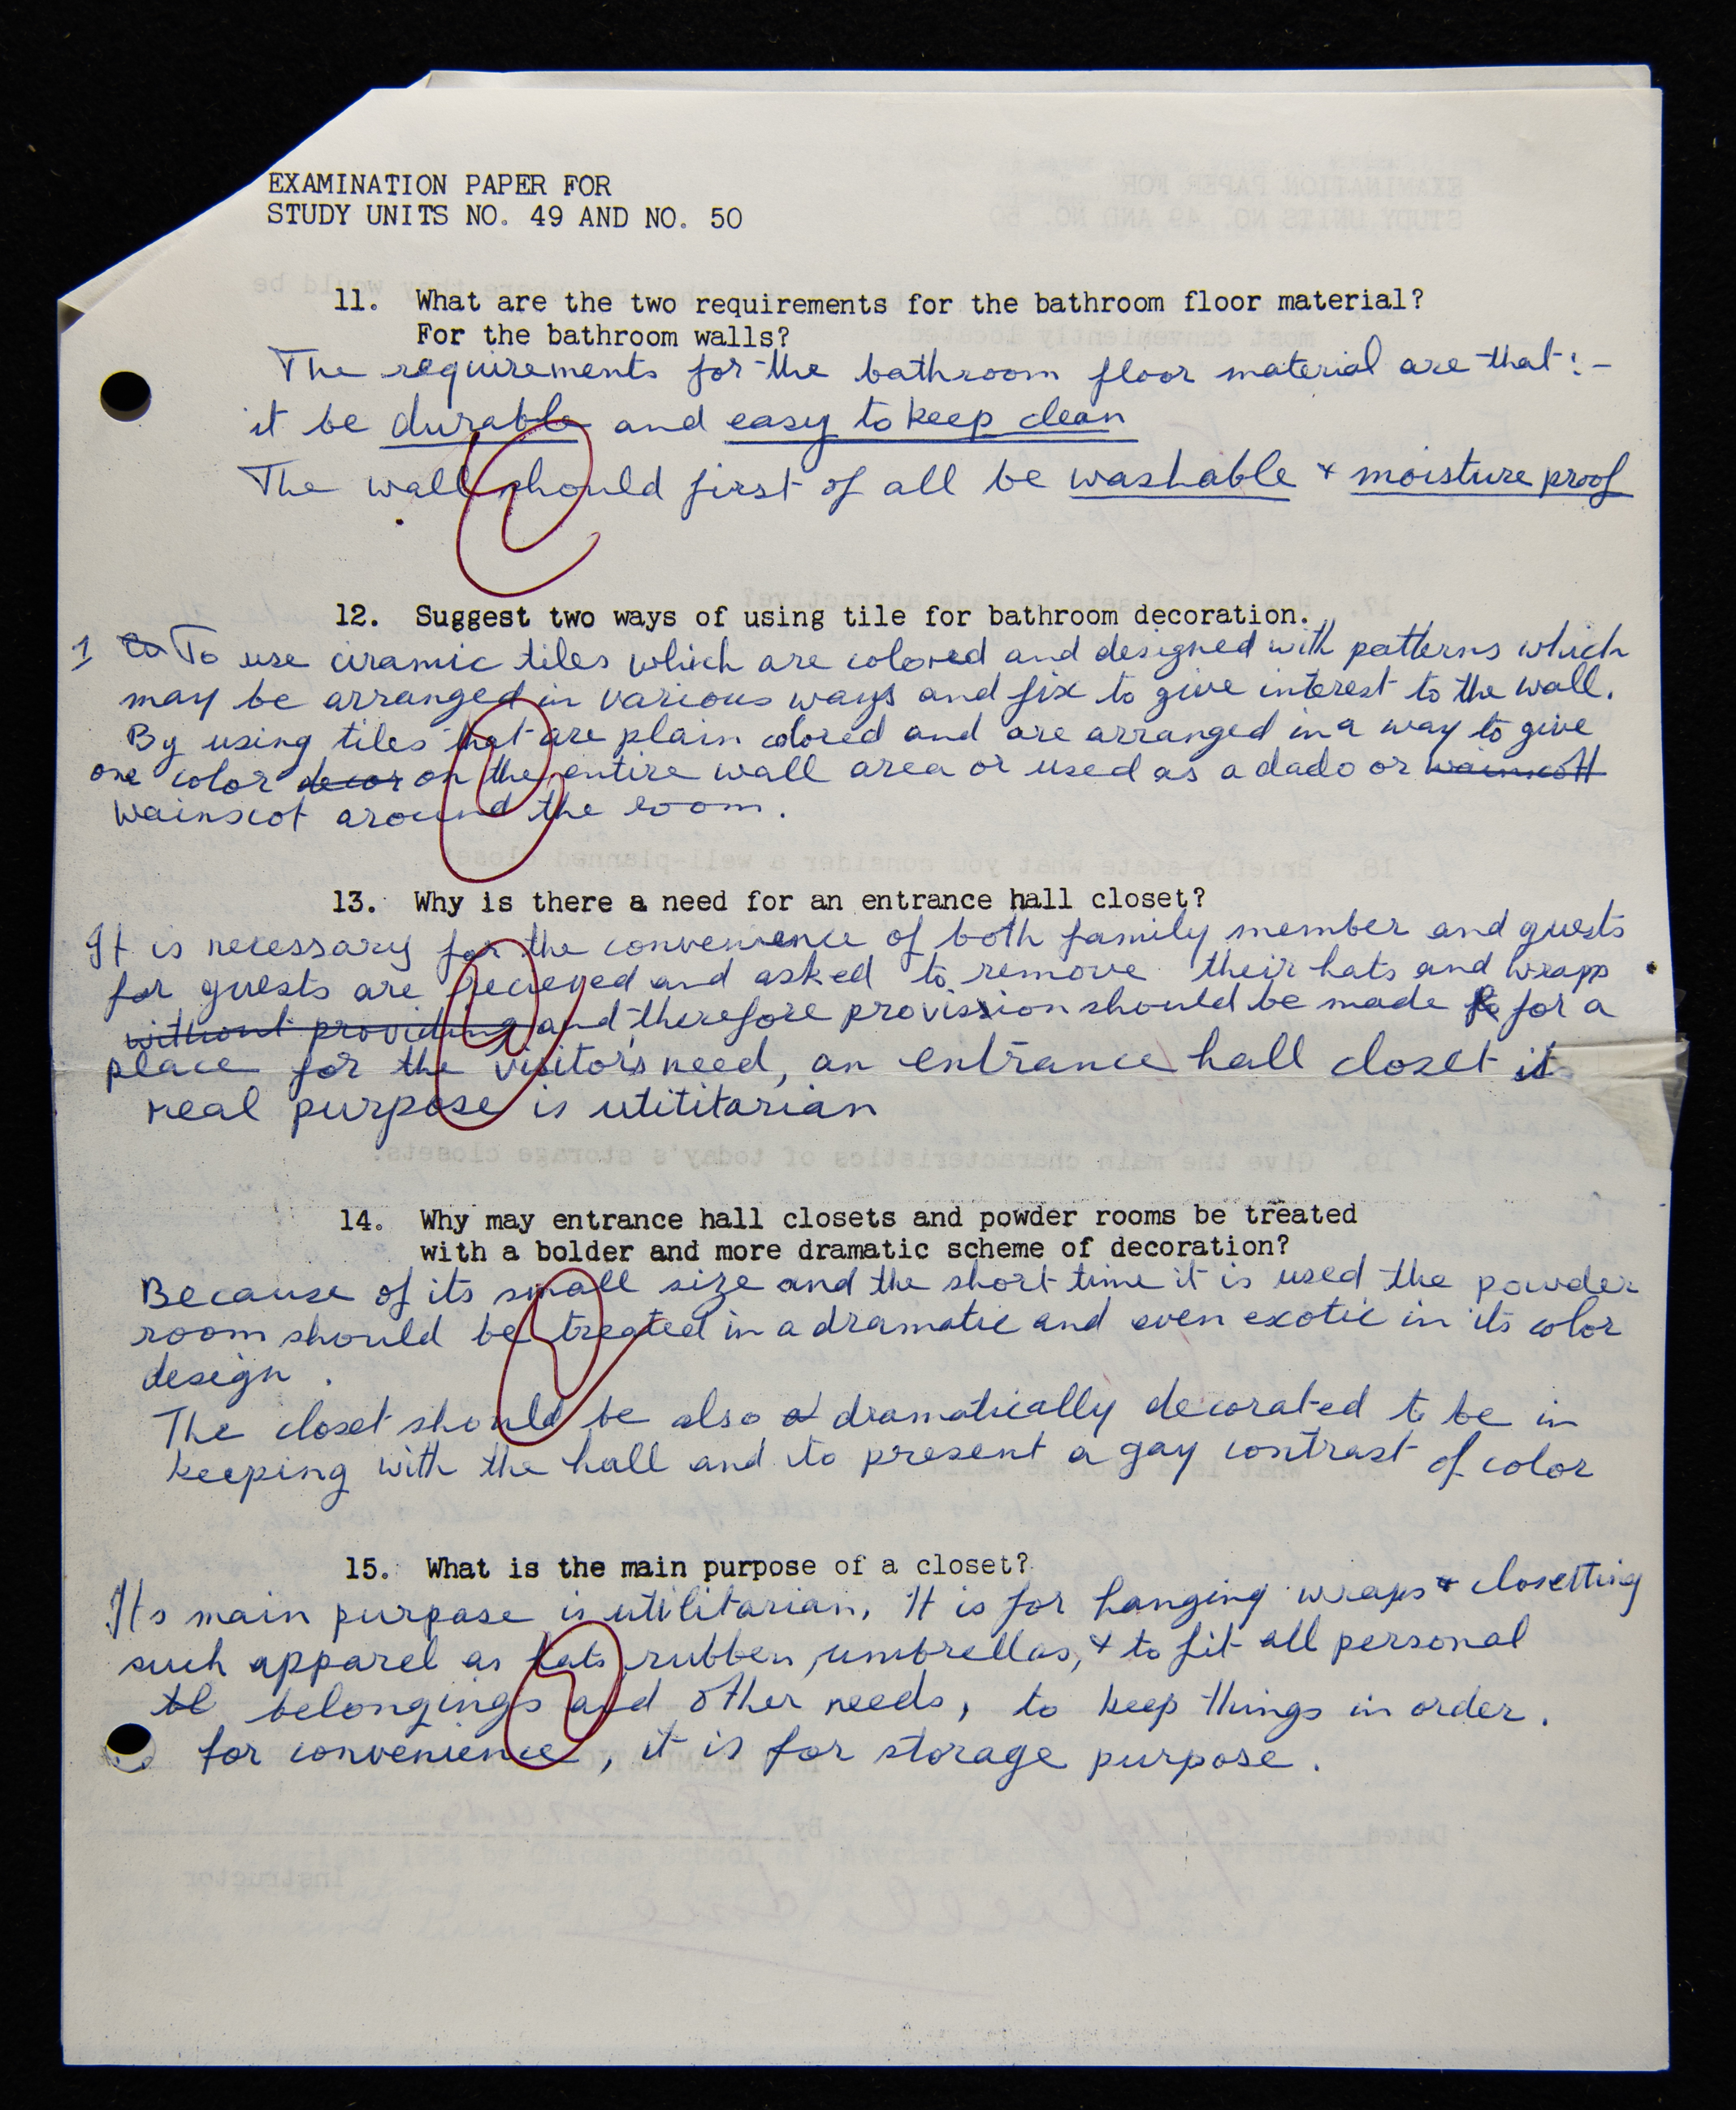 EXAMINATION PAPER FOR
STUDY UNITS NO. 49 AND NO. 50
11. What are the two requirements for the bathroom floor material?
For the bathroom walls?
The requirements for the bathroom floor material are that:-
it be durable and easy to keep clean
The wall should first of all be washable + moisture proof
12. Suggest two ways of using tile for bathroom decoration.
1 To use ciramic tiles which are colored and designed with patterns which
may be arranged in various ways and fix to give interest to the wall.
By using tiles that are plain colored and are arranged in a way to give
one color decor on the entire wall area or used as a dado or wainscott
wainscot around the room.
13. Why is there a need for an entrance hall closet?
It is necessary for the convenience of both family member and guests
for guests are recieved and asked to remove their hats and wrapp
without providing and therefore provission should be made for a
place for the visitors need, an entrance hall closet it
real purpose is utititarian
14. Why may entrance hall closets and powder rooms be treated
with a bolder and more dramatic scheme of decoration?
Because of its small size and the short time it is used the powder
room should be treated in a dramatic and even exotic in its color
design.
The closet should be also a dramatically decorated to be in
keeping with the hall and to present a gay contrast of color
15. What is the main purpose of a closet?
Its main purpose is utilitarian. It is for hanging wraps + closetting
such apparel as hats, rubben, umbrellas, + to fit all personal
belongings and other needs, to keep things in order.
for convenience, it is for storage purpose.